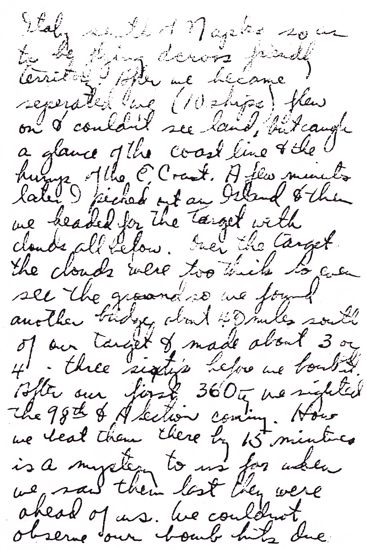 Italy south of Naples so as
to be flying across friendly
territory. After we became
seperated we (10 ships) flew
on & couldn't see land, but caugh
a glance of the coast line & the
of the E Coast. A few minuits
later I picked out an Island & then
we headed for the target with
clouds all below. Over the target
the clouds were too thick to even
see the ground so we found
another bridge about 40 miles south
of our target & made about 3 or
4 - three sixtys before we bombed.
After our first 360° we sighted
the 98th & A section coming. How
we beat them there by 15 minutes
is a mystery to us for when
we saw them last they were
ahead of us. We couldnt
observe our bomb hits due